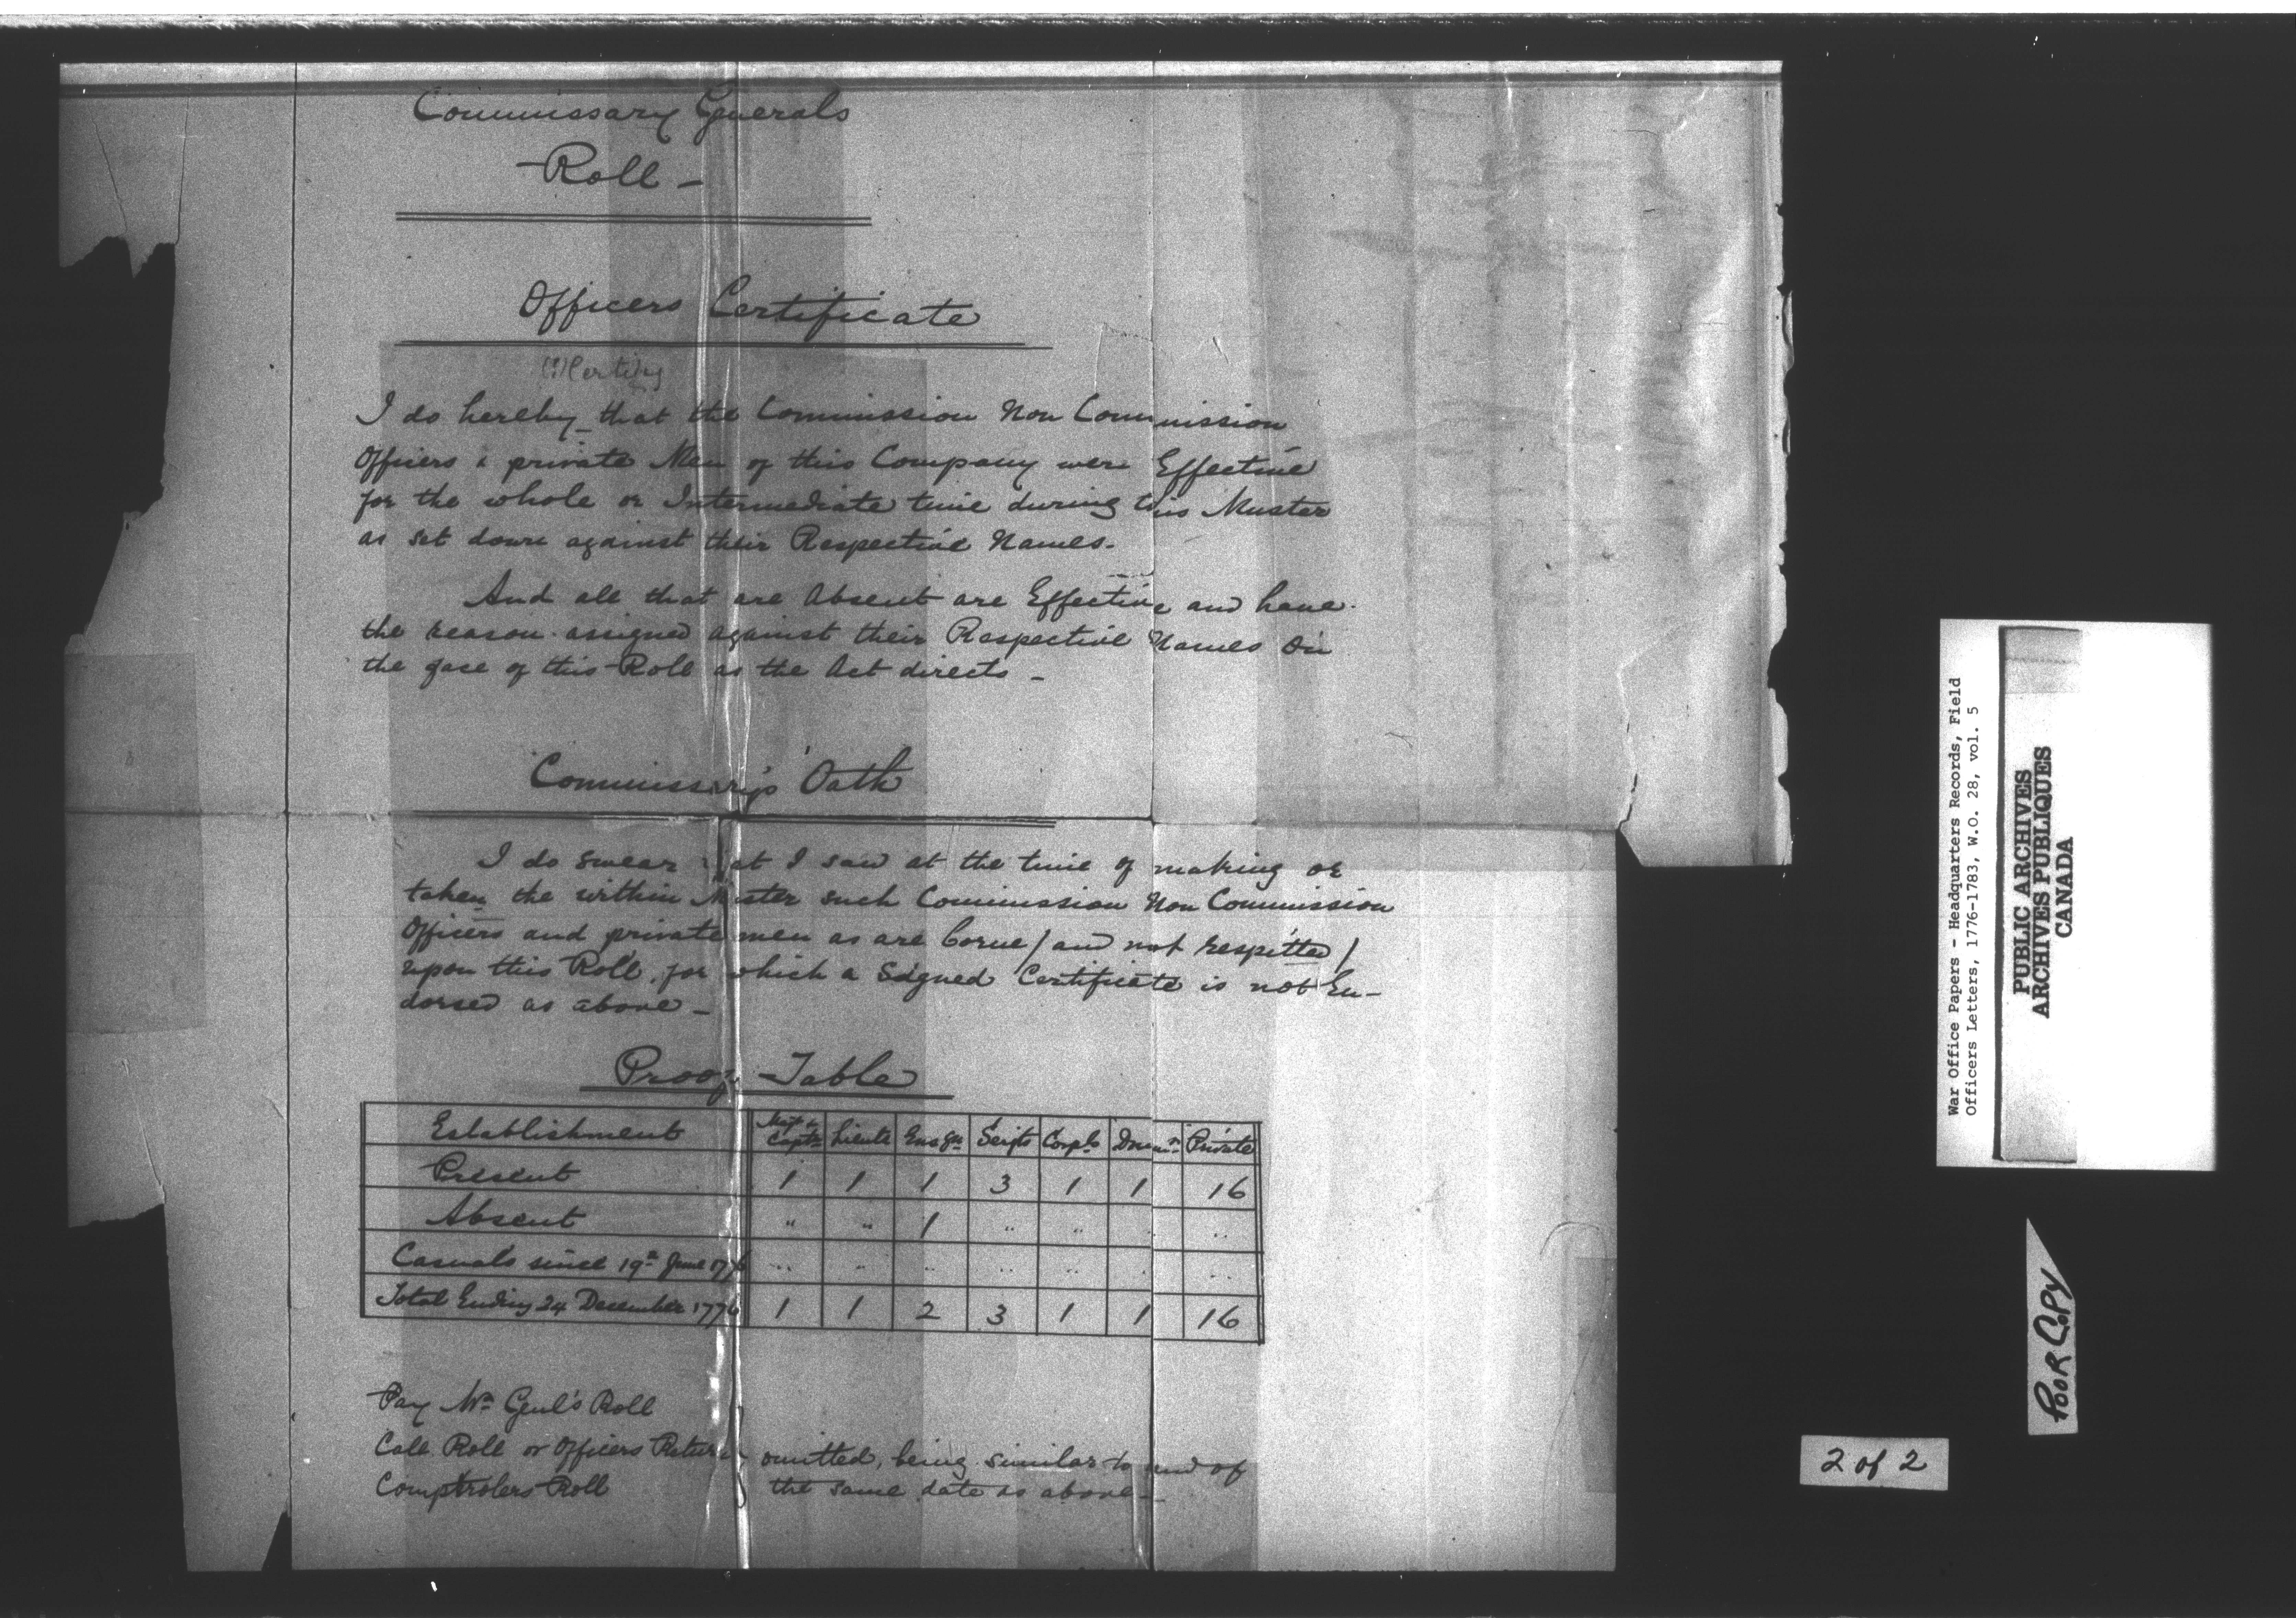 Commissary Generals
Roll -
Officers Certificate
(?) Certify
I do hereby that the Commission Non Commission
Officers & private Men of this Company were Effective
for the whole or Intermediate time during this Muster
as set down against their Respective Names.
And all that are Absent are Effective and have
the reason assigned against their Respective Names on
the face of this Roll as the Act directs -
Commissary's Oath
I do swear that I saw at the time of making or
taken the within Muster such Commission Non Commission
Officers and private men as are borne / and not respitted /
upon this Roll, for which a Signed Certificate is not En-
dorsed as above -
Proof Table
Establishment Capts Lieuts Ensgn Serjts Corpls Drumr Private
Present 1 1 1 3 1 1 16
Absent " " 1 " " " "
Casuals since 19th June 1776 " " " " " " "
Total Ending 24 December 1776 1 1 2 3 1 1 16
Pay Mr Genl's Roll
Call Roll or Officers Return omitted, being similar to and of
Comptrolers Roll the same date as above -
War Office Papers - Headquarters Records, Field
Officers Letters, 1776-1783, W.O. 28, vol. 5
PUBLIC ARCHIVES
ARCHIVES PUBLIQUES
CANADA
POOR COPY
2 of 2